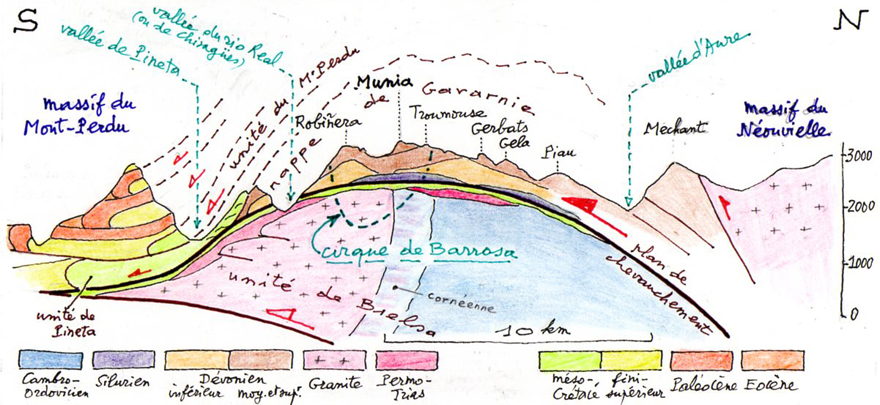 S
N
vallée du rio Real
(ou de Chisagües)
vallée de Pineta
vallée d'Aure
massif du
Mont-Perdu
unité du Mt Perdu
nappe de Gavarnie
Robiñera
Munia
Troumouse
Gerbats
Gela
Piau
Méchant
massif du
Néouvielle
3000
2000
1000
0
cirque de Barrosa
unité de Bielsa
cornéenne
plan de
chevauchement
unité de
Pineta
10 km
Cambro-
Ordovicien
Silurien
Dévonien
inférieur
moy. et sup.
Granite
Permo-
Trias
méso-
fini-
Crétacé
supérieur
Paléocène
Eocène